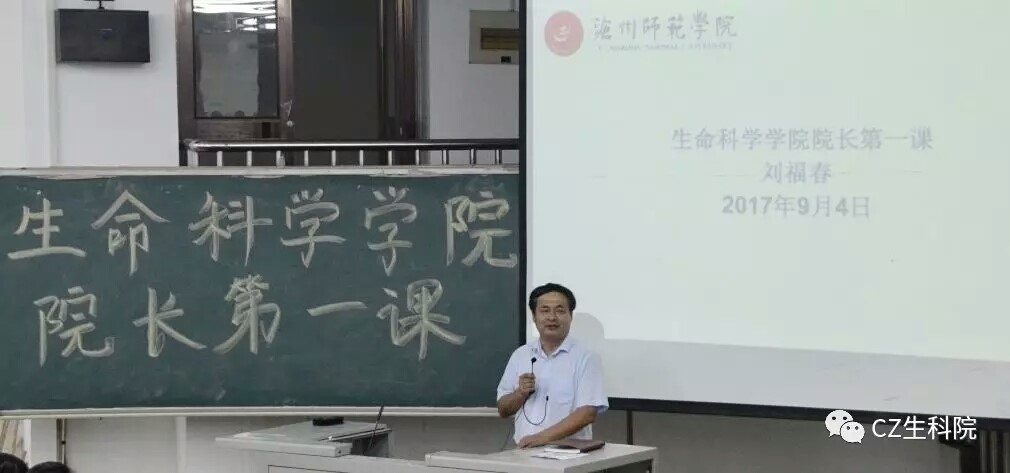 生命科学学院
院长第一课
滄州師範學院
CANGZHOU NORMAL UNIVERSITY
生命科学学院院长第一课
刘福春
2017年9月4日
CZ生科院